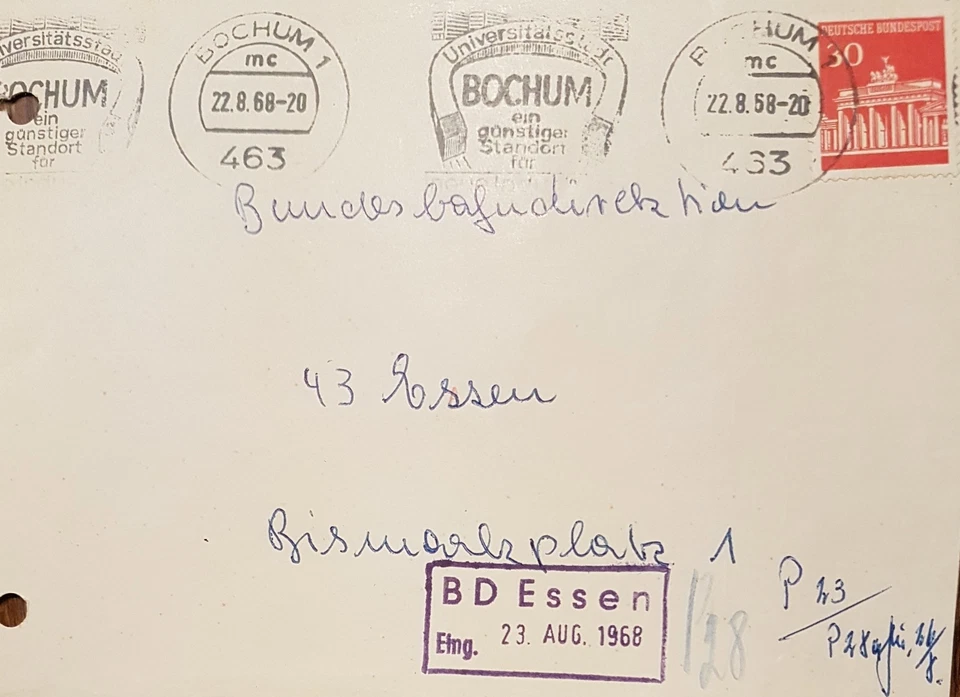 Universitätsstadt
BOCHUM
ein
günstiger
Standort
für
BOCHUM 1
mc
22.8.68-20
463
Universitätsstadt
BOCHUM
ein
günstiger
Standort
für
BOCHUM
mc
22.8.68-20
463
DEUTSCHE BUNDESPOST
30
Bundesbahndirektion
43 Essen
Bismarckplatz 1
BD Essen
Eing. 23. AUG. 1968
P 23
P28